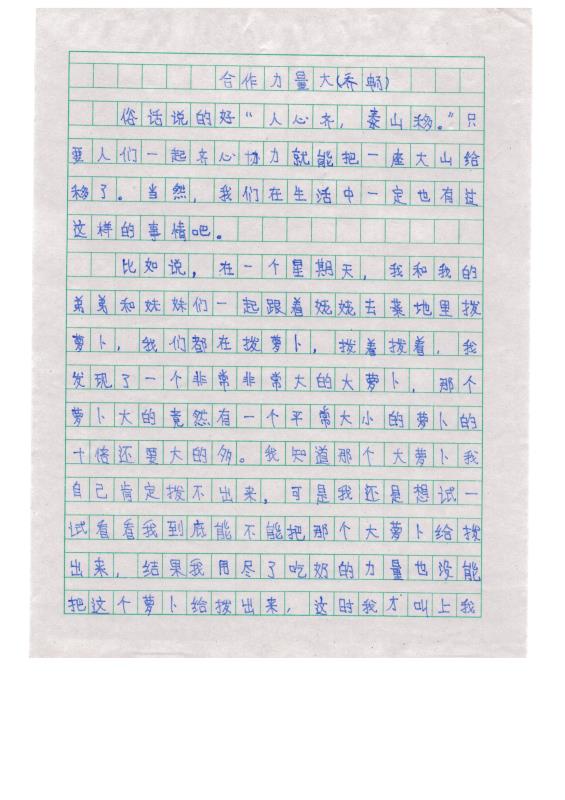 合作力量大(乔畅)
俗话说的好“人心齐，泰山移。”只
要人们一起齐心协力就能把一座大山给
移了。当然，我们在生活中一定也有过
这样的事情吧。
比如说，在一个星期天，我和我的
弟弟和妹妹们一起跟着姥姥去菜地里拨
萝卜，我们都在拨萝卜，拨着拨着，我
发现了一个非常非常大的大萝卜，那个
萝卜大的竟然有一个平常大小的萝卜的
十倍还要大的多。我知道那个大萝卜我
自己肯定拨不出来，可是我还是想试一
试看看我到底能不能把那个大萝卜给拨
出来，结果我用尽了吃奶的力量也没能
把这个萝卜给拨出来，这时我才叫上我